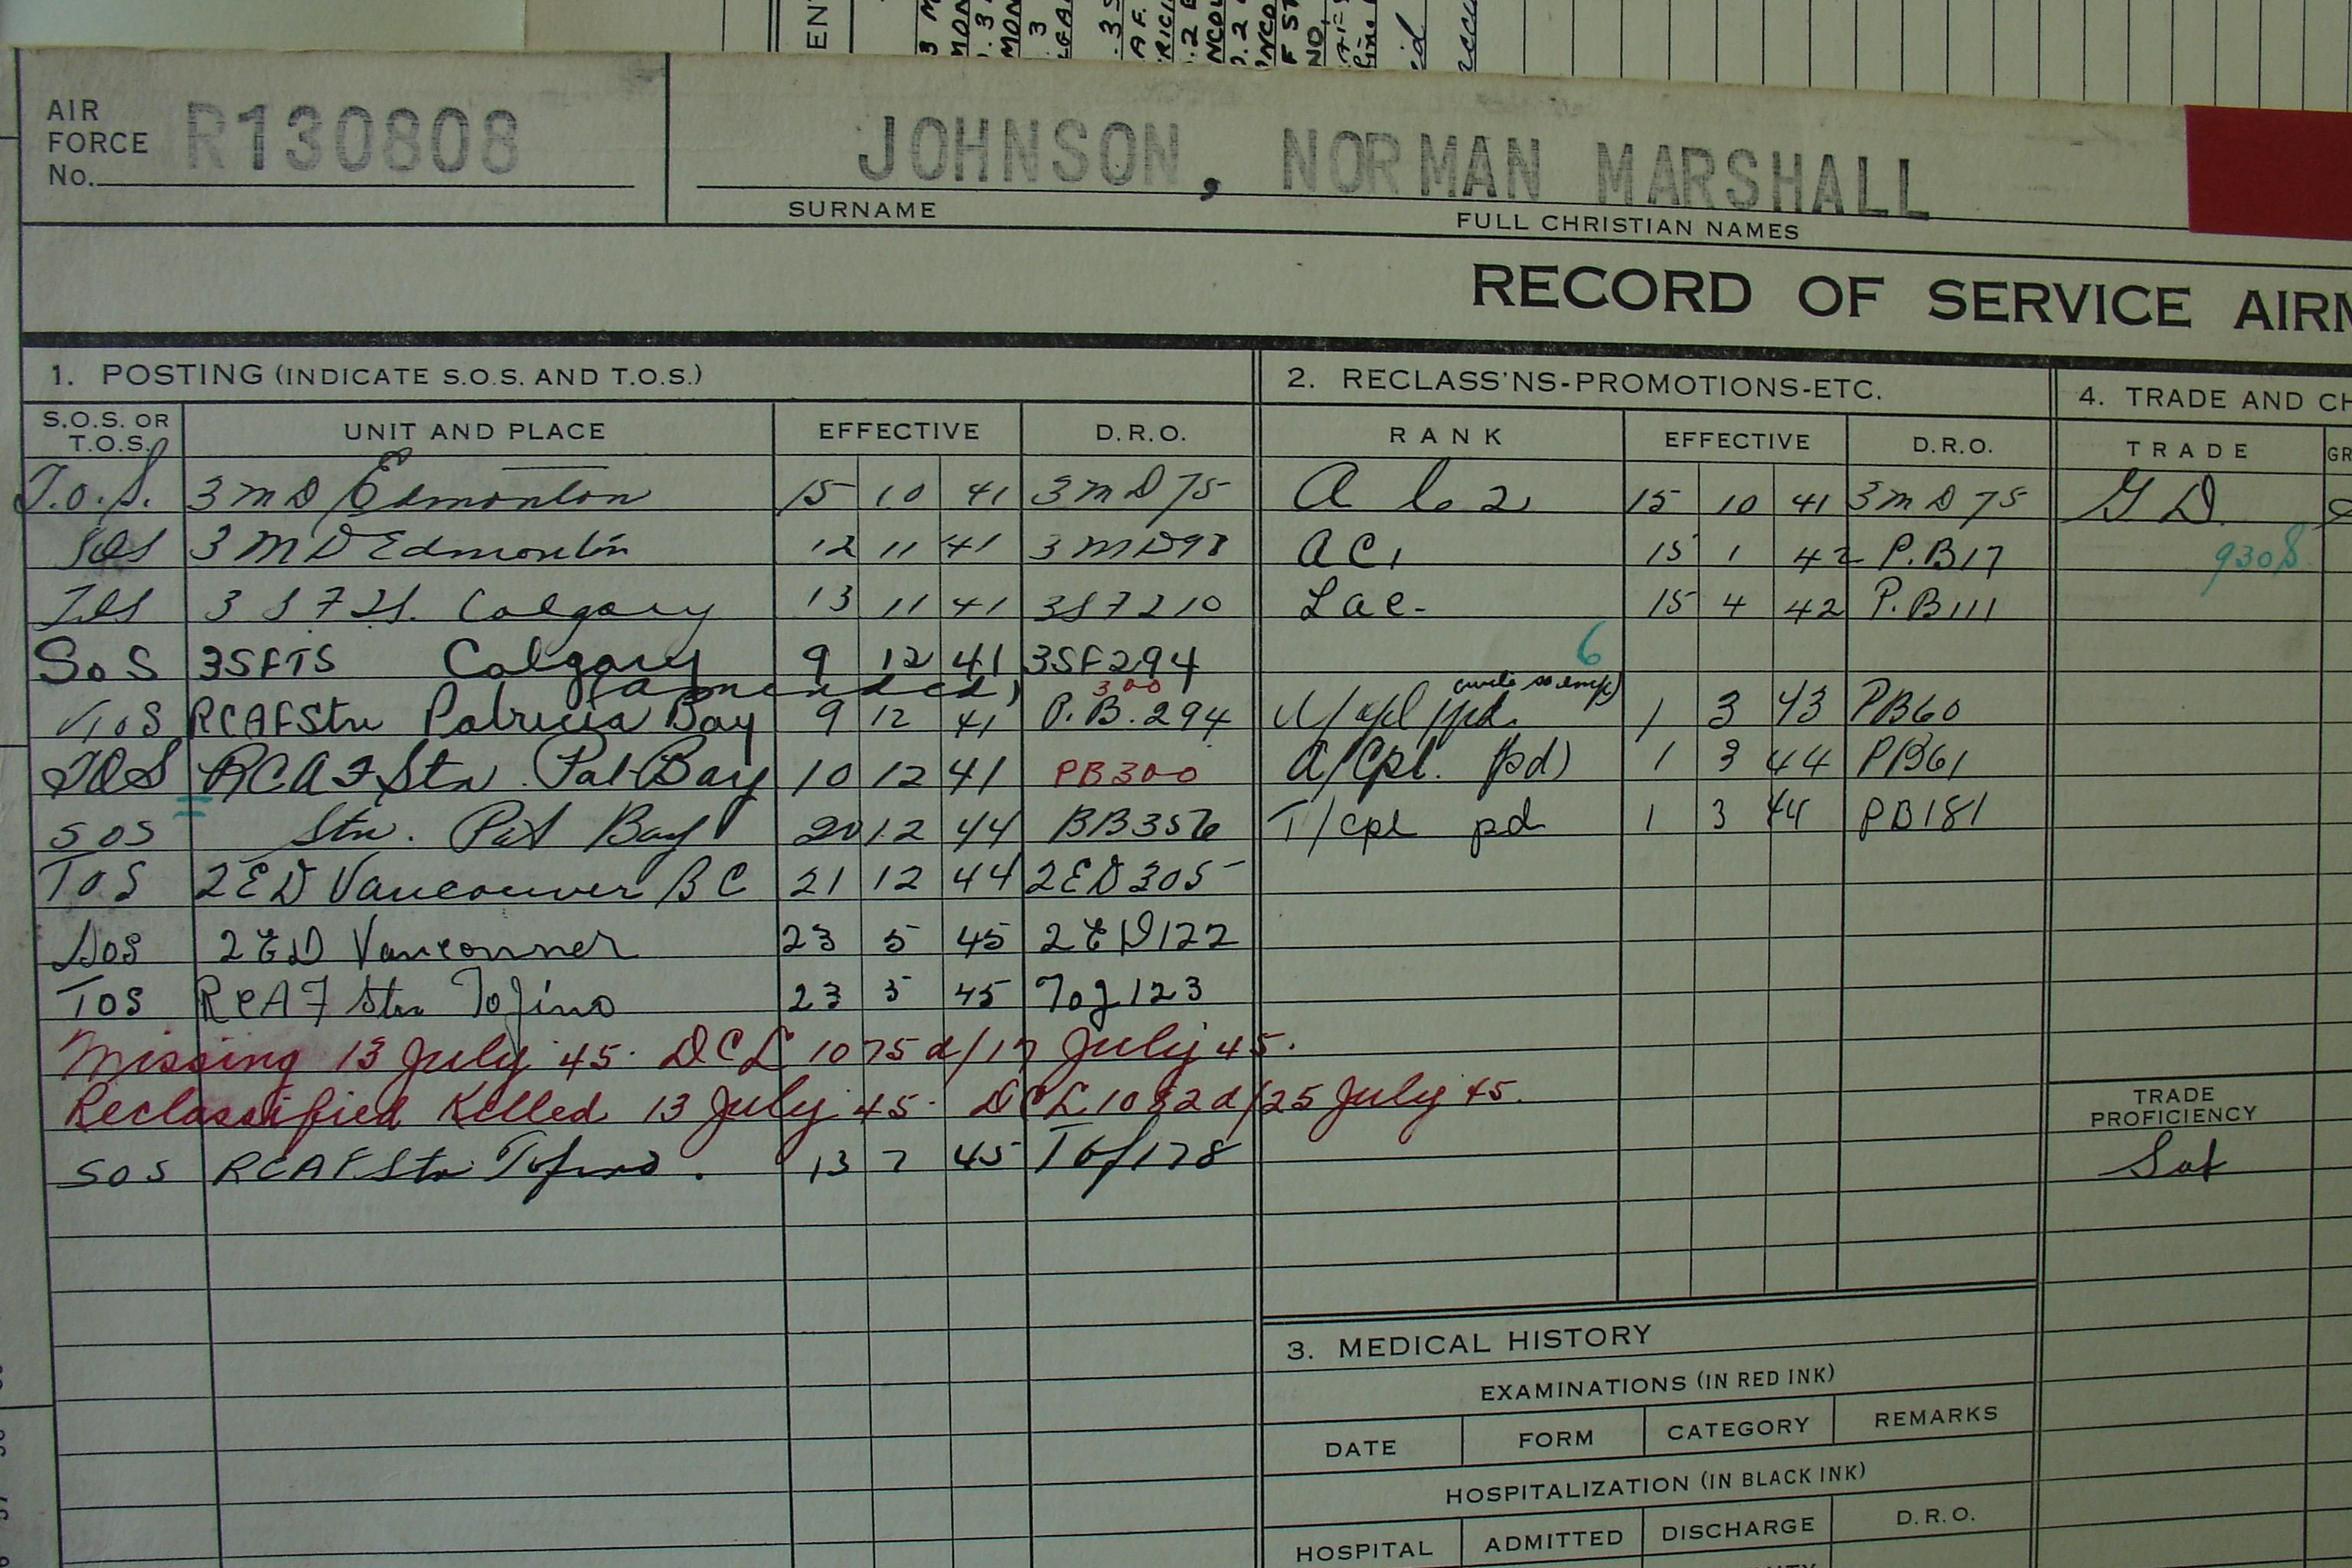 AIR FORCE No. R130808
JOHNSON, NORMAN MARSHALL
SURNAME FULL CHRISTIAN NAMES
RECORD OF SERVICE AIRM
1. POSTING (INDICATE S.O.S. AND T.O.S.)
S.O.S. OR T.O.S. UNIT AND PLACE EFFECTIVE D.R.O.
T.O.S. 3 M D Edmonton 15 10 41 3 M D 75
SOS 3 M D Edmonton 12 11 41 3 M D 98
TOS 3 S F T S. Calgary 13 11 41 3SF 210
SOS 3SFTS Calgary 9 12 41 3SF294
(amended) 300
TOS RCAF Stn Patricia Bay 9 12 41 P.B.294
TOS RCAF Stn Pat Bay 10 12 41 PB300
SOS Stn. Pat Bay 20 12 44 BB356
TOS 2ED Vancouver BC 21 12 44 2ED305
SOS 2ED Vancouver 23 5 45 2ED122
TOS RCAF Stn Tofino 23 5 45 Tof 123
Missing 13 July 45. DCL 1075 d/17 July 45.
Reclassified Killed 13 July 45. DCL 1082 d/25 July 45.
SOS RCAF Stn Tofino. 13 7 45 Tof178
2. RECLASS'NS-PROMOTIONS-ETC.
RANK EFFECTIVE D.R.O.
A C 2 15 10 41 3 M D 75
AC1 15 1 42 P.B17
Lac- 15 4 42 P.B111
6
A/cpl pd. 1 3 43 PB60
A/Cpl. (pd) 1 3 44 PB61
T/cpl pd 1 3 44 PB181
3. MEDICAL HISTORY
EXAMINATIONS (IN RED INK)
DATE FORM CATEGORY REMARKS
HOSPITALIZATION (IN BLACK INK)
HOSPITAL ADMITTED DISCHARGE D.R.O.
4. TRADE AND CH
TRADE GR
G D.
9308
TRADE PROFICIENCY
Sat